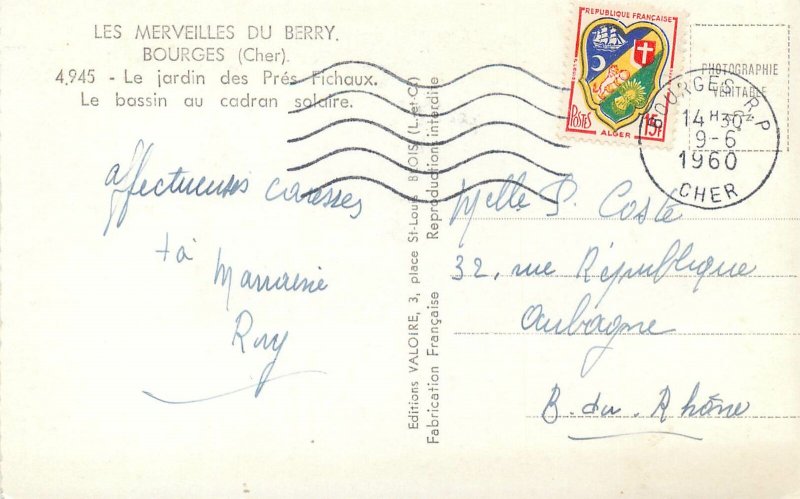 LES MERVEILLES DU BERRY.
BOURGES (Cher).
4.945 - Le jardin des Prés Fichaux.
Le bassin au cadran solaire.
affectueuses caresses
ta Marraine
Editions VALOIRE, 3, place St-Louis BLOIS (L.-et-C.)
Fabrication Française
Reproduction interdite
REPUBLIQUE FRANÇAISE
POSTES
ALGER
15F
PHOTOGRAPHIE
VERITABLE
BOURGES R.P
14H30
9-6
1960
CHER
Melle P. Coste
32, rue République
Aubagne
B. du. Rhône